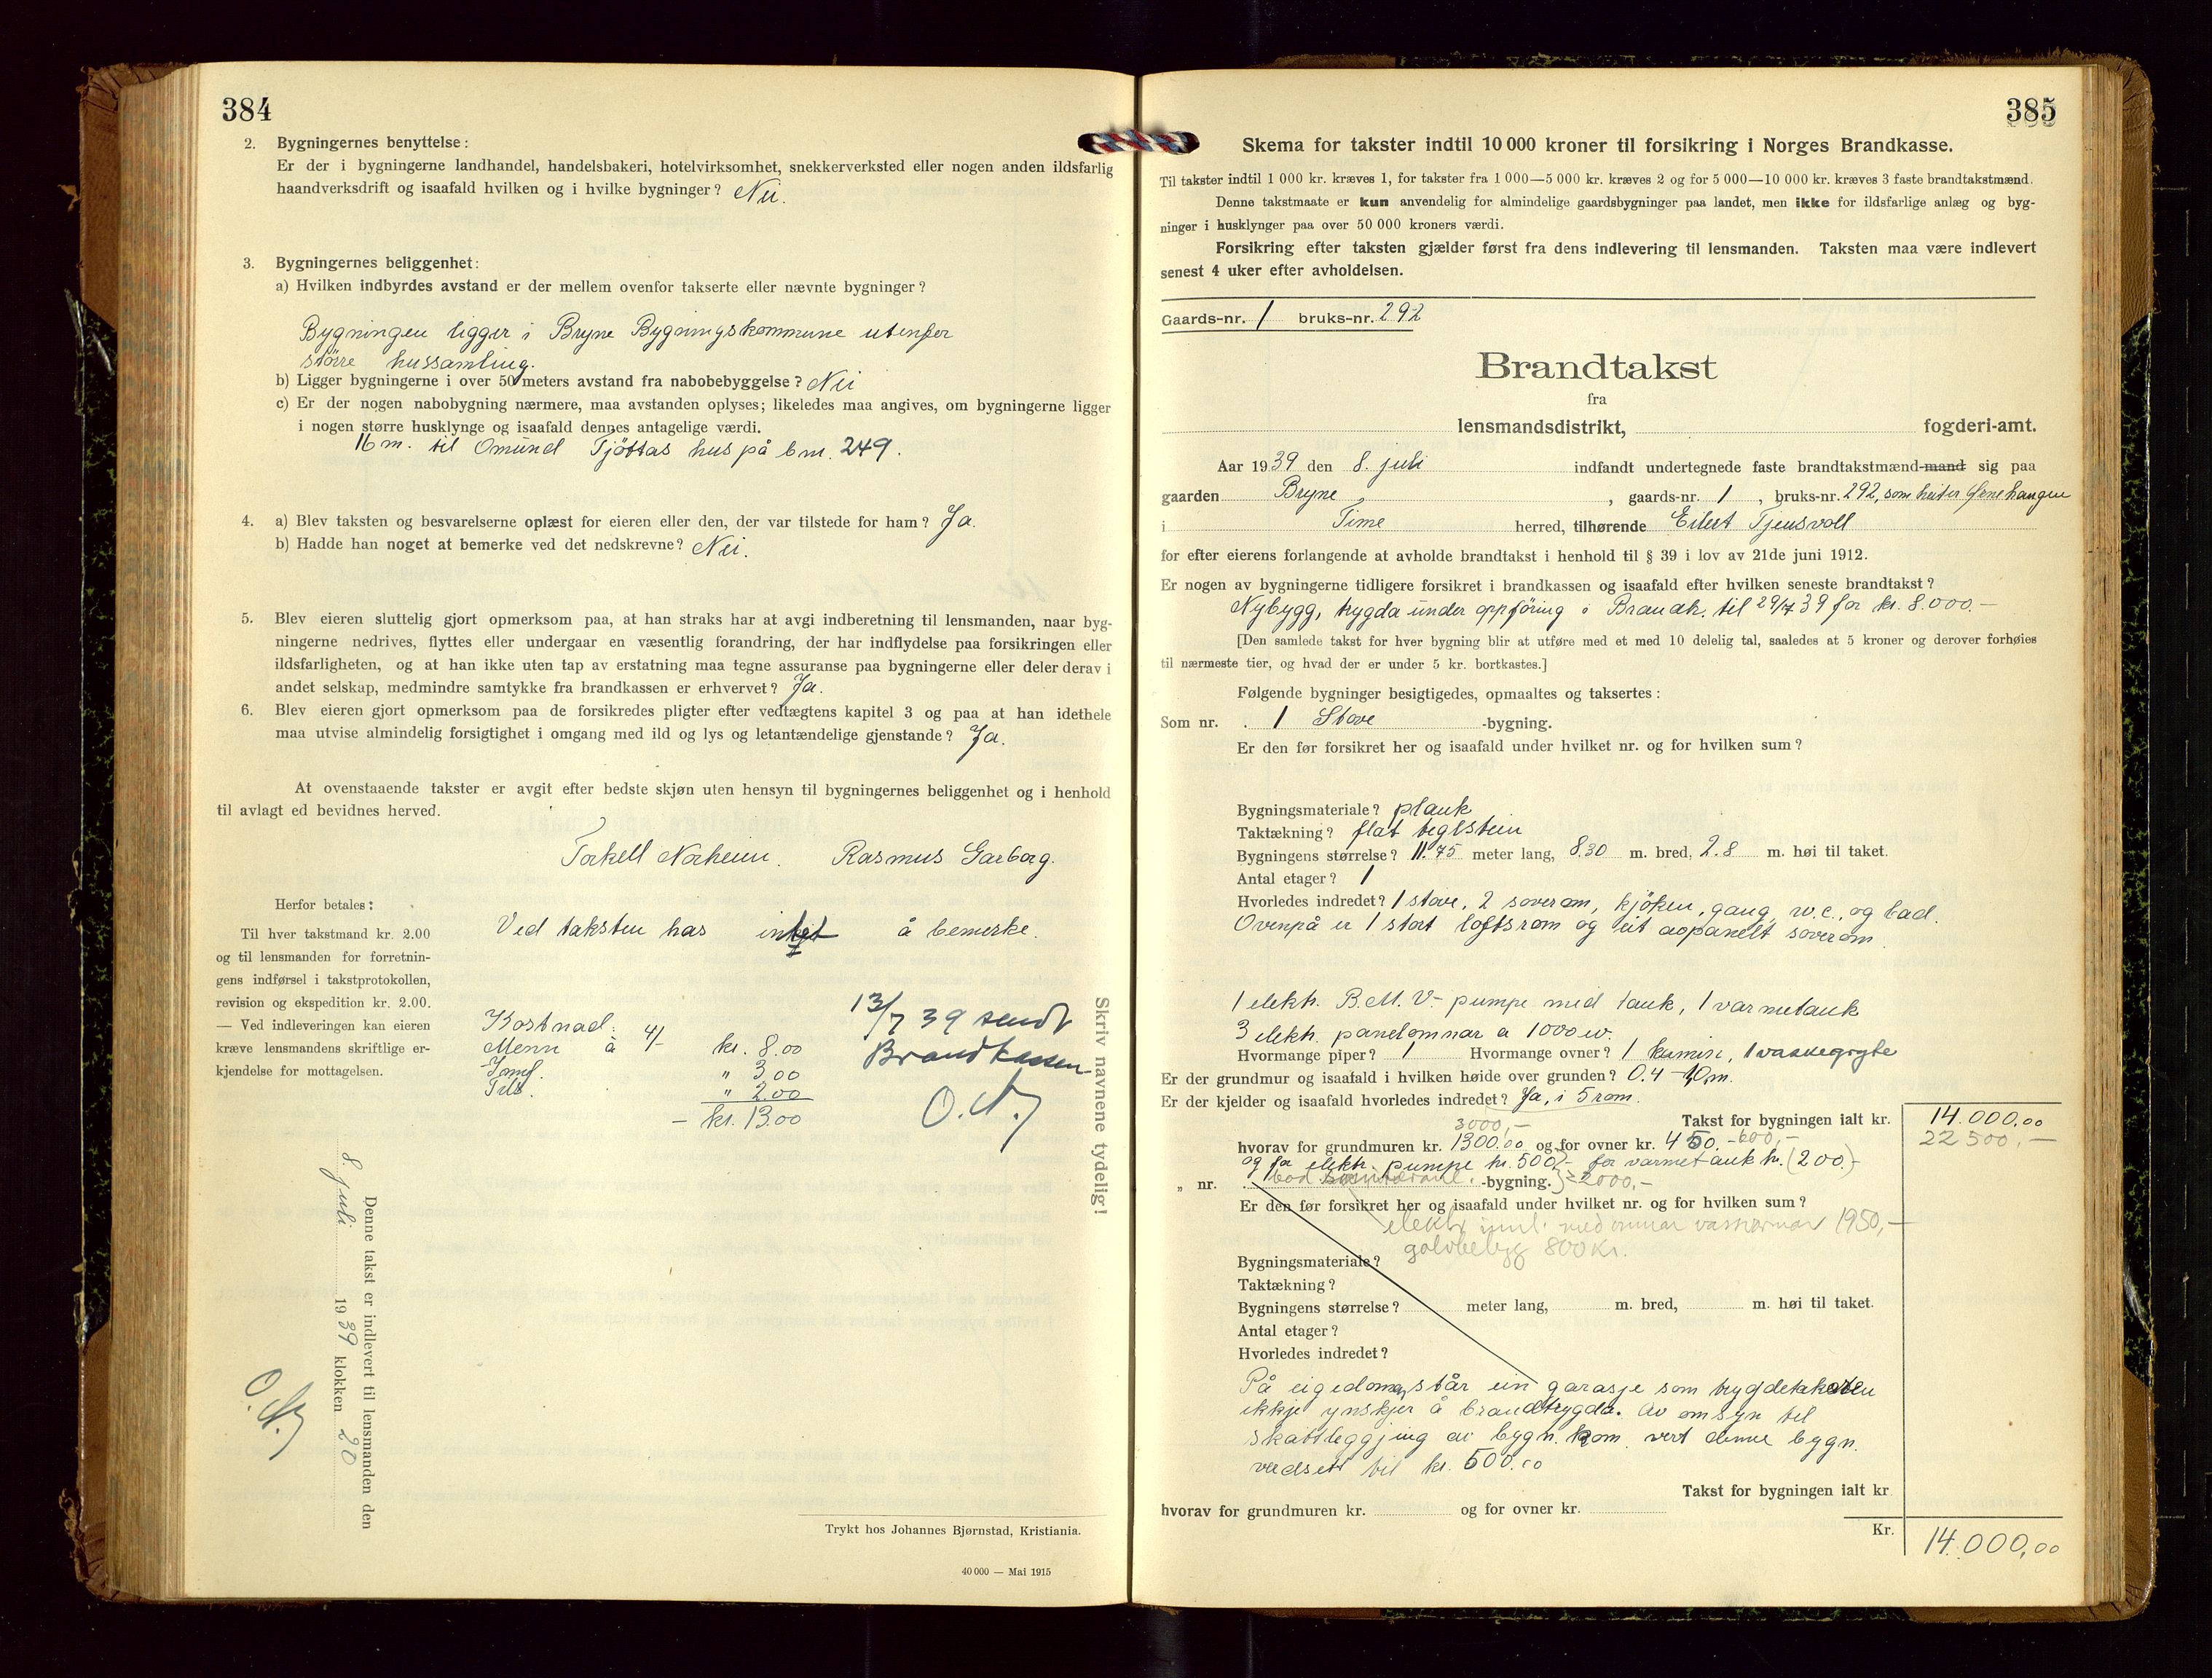 384
2. Bygningernes benyttelse:
Er der i bygningerne landhandel, handelsbakeri, hotelvirksomhet, snekkerverksted eller nogen anden ildsfarlig
haandverksdrift og isaafald hvilken og i hvilke bygninger? Nei.
3. Bygningernes beliggenhet:
a) Hvilken indbyrdes avstand er der mellem ovenfor takserte eller nævnte bygninger?
Bygningen ligger i Bryne Bygningskommune utenfor
større hussamling.
b) Ligger bygningerne i over 50 meters avstand fra nabobebyggelse? Nei
c) Er der nogen nabobygning nærmere, maa avstanden oplyses; likeledes maa angives, om bygningerne ligger
i nogen større husklynge og isaafald dennes antagelige værdi.
16 m. til Omund Tjöttas hus på bnr. 249.
4. a) Blev taksten og besvarelserne oplæst for eieren eller den, der var tilstede for ham? Ja.
b) Hadde han noget at bemerke ved det nedskrevne? Nei.
5. Blev eieren sluttelig gjort opmerksom paa, at han straks har at avgi indberetning til lensmanden, naar byg-
ningerne nedrives, flyttes eller undergaar en væsentlig forandring, der har indflydelse paa forsikringen eller
ildsfarligheten, og at han ikke uten tap av erstatning maa tegne assuranse paa bygningerne eller deler derav i
andet selskap, medmindre samtykke fra brandkassen er erhvervet? Ja.
6. Blev eieren gjort opmerksom paa de forsikredes pligter efter vedtægtens kapitel 3 og paa at han idethele
maa utvise almindelig forsigtighet i omgang med ild og lys og letantændelige gjenstande? Ja.
At ovenstaaende takster er avgit efter bedste skjøn uten hensyn til bygningernes beliggenhet og i henhold
til avlagt ed bevidnes herved.
Torkell Norheim. Rasmus Garborg.
Herfor betales:
Til hver takstmand kr. 2.00
og til lensmanden for forretnin-
gens indførsel i takstprotokollen,
revision og ekspedition kr. 2.00.
— Ved indleveringen kan eieren
kræve lensmandens skriftlige er-
kjendelse for mottagelsen.
Ved taksten has intet å bemerke.
Kostnad:
Menn à 4/- kr. 8.00
" 3.00
" 2.00
- kr. 13.00
13/7 39 sendt
Brandkassen
Skriv navnene tydelig!
Denne takst er indlevert til lensmanden den
8. juli 1939 klokken 20
Trykt hos Johannes Bjørnstad, Kristiania.
40 000 — Mai 1915
385
Skema for takster indtil 10 000 kroner til forsikring i Norges Brandkasse.
Til takster indtil 1 000 kr. kræves 1, for takster fra 1 000—5 000 kr. kræves 2 og for 5 000—10 000 kr. kræves 3 faste brandtakstmænd.
Denne takstmaate er kun anvendelig for almindelige gaardsbygninger paa landet, men ikke for ildsfarlige anlæg og byg-
ninger i husklynger paa over 50 000 kroners værdi.
Forsikring efter taksten gjælder først fra dens indlevering til lensmanden. Taksten maa være indlevert
senest 4 uker efter avholdelsen.
Gaards-nr. 1 bruks-nr. 292
Brandtakst
fra
lensmandsdistrikt, fogderi-amt.
Aar 1939 den 8. juli indfandt undertegnede faste brandtakstmænd-mand sig paa
gaarden Bryne, gaards-nr. 1, bruks-nr. 292, som heiter Ørnehaugen
i Time herred, tilhørende Eilert Tjensvoll
for efter eierens forlangende at avholde brandtakst i henhold til § 39 i lov av 21de juni 1912.
Er nogen av bygningerne tidligere forsikret i brandkassen og isaafald efter hvilken seneste brandtakst?
Nybygg, trygda under oppföring i Brandk. til 29/7 39 for kr. 8.000.—
[Den samlede takst for hver bygning blir at utføre med et med 10 delelig tal, saaledes at 5 kroner og derover forhøies
til nærmeste tier, og hvad der er under 5 kr. bortkastes.]
Følgende bygninger besigtigedes, opmaaltes og taksertes:
Som nr. 1 Stove -bygning.
Er den før forsikret her og isaafald under hvilket nr. og for hvilken sum?
Bygningsmateriale? plank
Taktækning? flat teglstein
Bygningens størrelse? 11.75 meter lang, 8.30 m. bred, 2.8 m. høi til taket.
Antal etager? 1
Hvorledes indredet? 1 stove, 2 soverom, kjöken, gang, w.c., og bad.
Ovenpå er 1 stort loftsrom og eit aopanelt soverom.
1 elektr. B.M.V- pumpe med tank, 1 varmetank
3 elektr. panelomnar a 1000 w.
Hvormange piper? 1 Hvormange ovner? 1 kamin, 1 vaskegryte
Er der grundmur og isaafald i hvilken høide over grunden? 0.4 - 1,0 m.
Er der kjelder og isaafald hvorledes indredet? Ja, i 5 rom.
Takst for bygningen ialt kr. 14.000,00
3000,- 22500,—
hvorav for grundmuren kr. 1300.00 og for ovner kr. 450.- 600,-
og for elektr. pumpe kr. 500,- for varmetank kr. (200.-
" nr. bad -bygning. = 2000,-
Er den før forsikret her og isaafald under hvilket nr. og for hvilken sum?
elektr. innl. med omnar 1950,-
golvbelegg 800 kr.
Bygningsmateriale?
Taktækning?
Bygningens størrelse? meter lang, m. bred, m. høi til taket.
Antal etager?
Hvorledes indredet?
På eigedomen står ein garasje som trygdetakaren
ikkje ynskjer å brandtrygda. Av omsyn til
skattleggjing av bygn. kom. vert denne bygn.
verdsett til kr. 500.00
Takst for bygningen ialt kr
hvorav for grundmuren kr. og for ovner kr.
Kr. 14.000,00